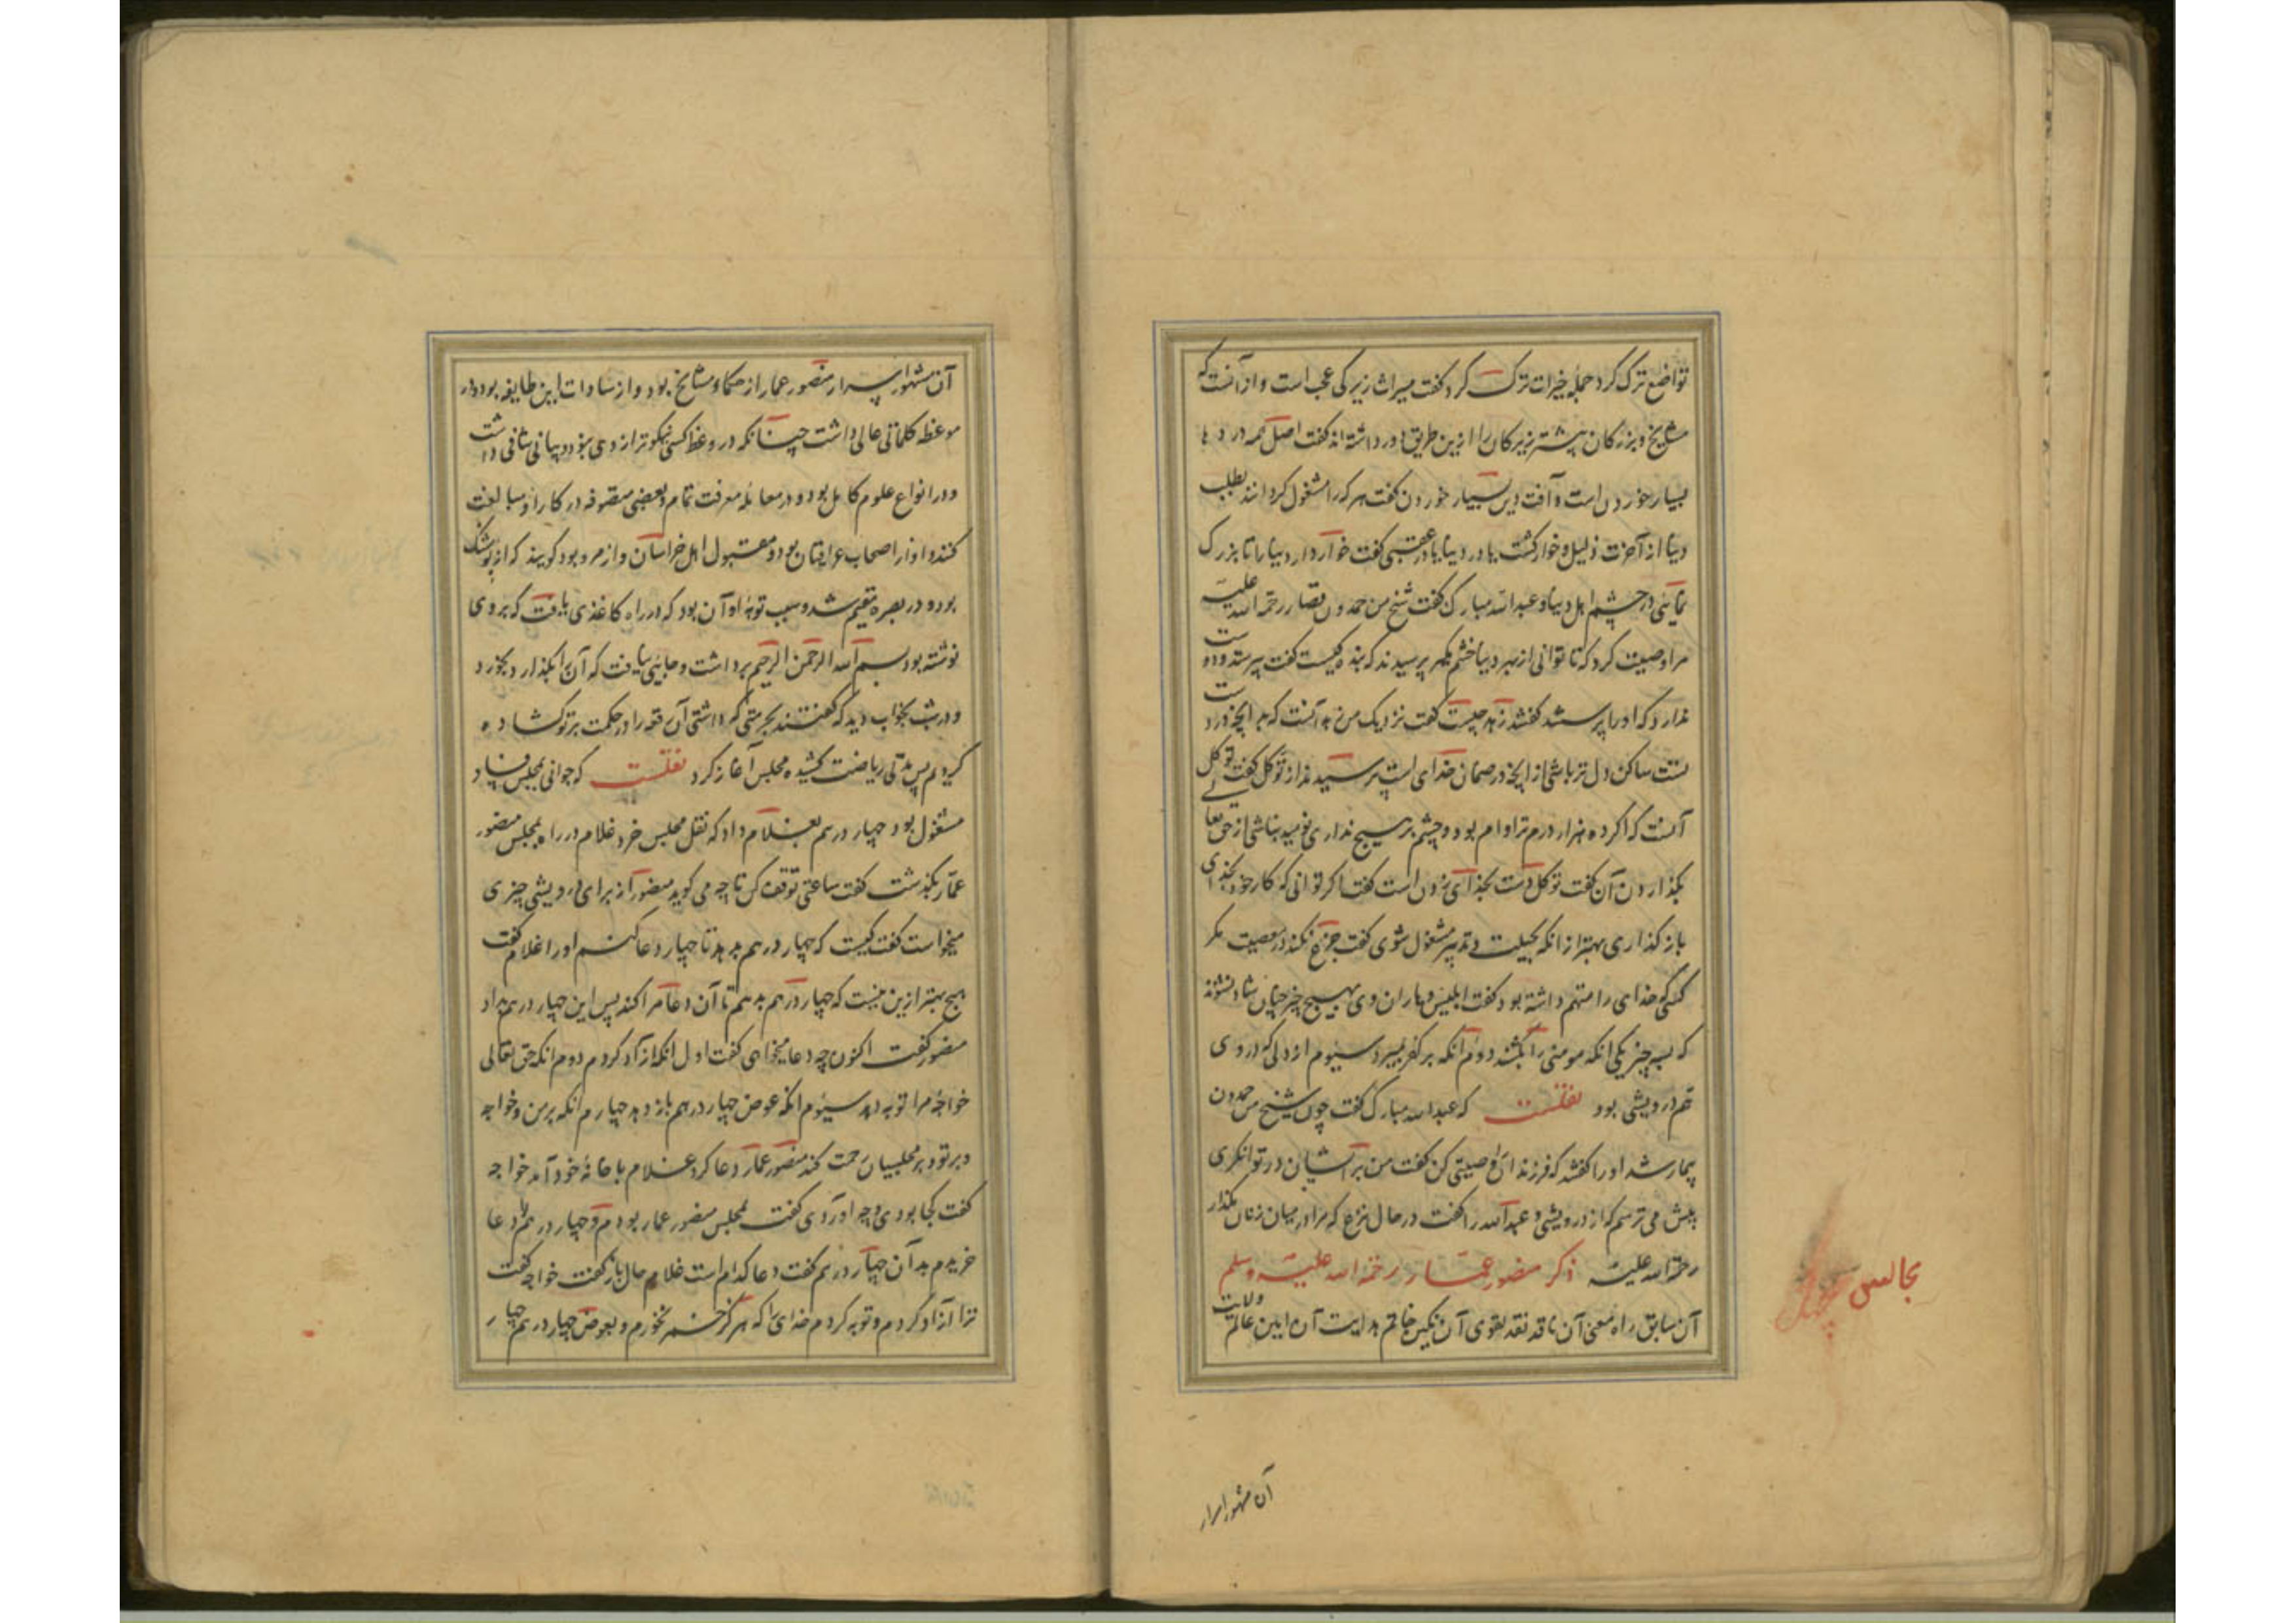 تواضع ترک کرد جمله خیرات ترک کرد گفت میراث زیرکی عجب است و از آنست که
مشایخ و بزرگان بیشتر زیرکان را ازین طریق دور داشته‌اند گفت اصل همه دردها
بسیار خوردن است و آفت دین بسیار خوردن گفت هر که را مشغول گردانند بطلب
دنیا از آخرت ذلیل و خوار گشت یا در دنیا یا در عقبی گفت خوار دار دنیا را تا بزرگ
نمائی در چشم اهل دنیا و عبدالله مبارک گفت شیخ من حمدون قصار رحمة الله علیه
مرا وصیت کرد که تا توانی از بهر دنیا خشم مگیر پرسیدند که بنده کیست گفت پرستد و دوست
ندارد که او را پرستند گفتند زهد چیست گفت نزدیک من زهد آنست که بدانچه در دست
تست ساکن دل تر نباشی از آنچه در ضمان خدای است پرسیدند از توکل گفت توکل
آنست که اگر ده هزار درم ترا وام بود و چشم بر هیچ نداری نومید نباشی از حق تعالی
بگذاردن آن گفت توکل دست بخدای زدن است گفت اگر توانی که کار خود بخدای
باز گذاری بهتر از آنکه بحیلت و تدبیر مشغول شوی گفت جزع نکند در مصیبت مگر
کسی که خدای را متهم داشته بود گفت ابلیس و یاران وی بهیچ چیز چنان شاد نشوند
که بسه چیز یکی آنکه مومنی را بکشند دوم آنکه بر کفر بمیرد سیوم از دلی که در وی
بیم درویشی بود نقلست که عبدالله مبارک گفت چون شیخ من حمدون
بیمار شد او را گفتند که فرزندان را وصیتی کن گفت من بر ایشان در توانگری
بیش می ترسم که از درویشی و عبدالله را گفت در حال نزع که مرا در میان زنان مگذار
رحمة الله علیه ذکر منصور عمار رحمة الله علیه وسلم
آن سابق راه معنی آن ناقد نقد تقوی آن نگین خاتم هدایت آن امین عالم ولایت
مجالس
آن مشهور اسرار
آن مشهور اسرار منصور عمار از حکماء مشایخ بود و از سادات این طایفه بود و در
موعظه کلماتی عالی داشت چنانکه در وعظ کسی نیکوتر از وی نبود و بیانی شافی داشت
و در انواع علوم کامل بود و در معامله معرفت تمام و بعضی متصوفه در کار او مبالغت
کنند و او از اصحاب عراقیان بود و مقبول اهل خراسان و از مرو بود گویند که از پوشنگ
بود و در بصره مقیم شد و سبب توبه او آن بود که در راه کاغذی یافت که بر وی
نوشته بود بسم الله الرحمن الرحیم برداشت و جائی نیافت که آن را بگذارد بخورد
و در شب بخواب دید که گفتند بحرمتی که داشتی آن رقعه را در حکمت بر تو گشاده
کردیم پس مدتی ریاضت کشیده مجلس آغاز کرد نقلست که جوانی بمجلس فساد
مشغول بود چهار درهم بغلام داد که نقل مجلس خرد غلام در راه بمجلس منصور
عمار بگذشت گفت ساعتی توقف کن تا چه می گوید منصور از برای درویشی چیزی
میخواست گفت کیست که چهار درهم بدهد تا چهار دعا کنم او را غلام گفت
هیچ بهتر ازین نیست که چهار درهم بدهم تا آن دعا مرا کند پس این چهار درهم بداد
منصور گفت اکنون چه دعا میخواهی گفت اول آنکه آزاد گردم دوم آنکه حق تعالی
خواجه مرا توبه دهد سیوم آنکه عوض چهار درهم باز دهد چهارم آنکه بر من و خواجه
و بر تو و بر مجلسیان رحمت کند منصور عمار دعا کرد غلام با خانه خود آمد خواجه
گفت کجا بودی و چه آوردی گفت بمجلس منصور عمار بودم و چهار درهم دعا
خریدم بدان چهار درهم گفت دعا کدام است غلام حال باز گفت خواجه گفت
ترا آزاد کردم و توبه کردم خدای را که هرگز خمر نخورم و بعوض چهار درهم چهار